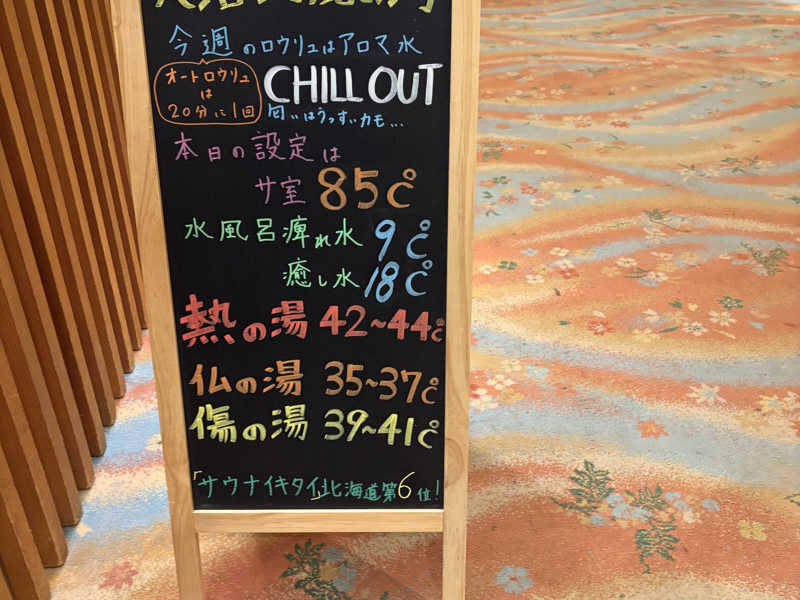 今週のロウリュはアロマ水
オートロウリュ
は
20分に1回
CHILL OUT
匂いはうっすいカモ...
本日の設定は
サ室 85℃
水風呂痺れ水 9℃
癒し水 18℃
熱の湯 42~44℃
仏の湯 35~37℃
傷の湯 39~41℃
「サウナイキタイ」北海道第6位!